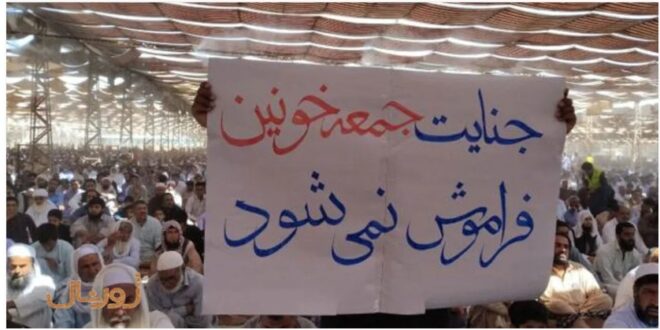 جنایت جمعه خونین
فراموش نمی شود
ژورنال